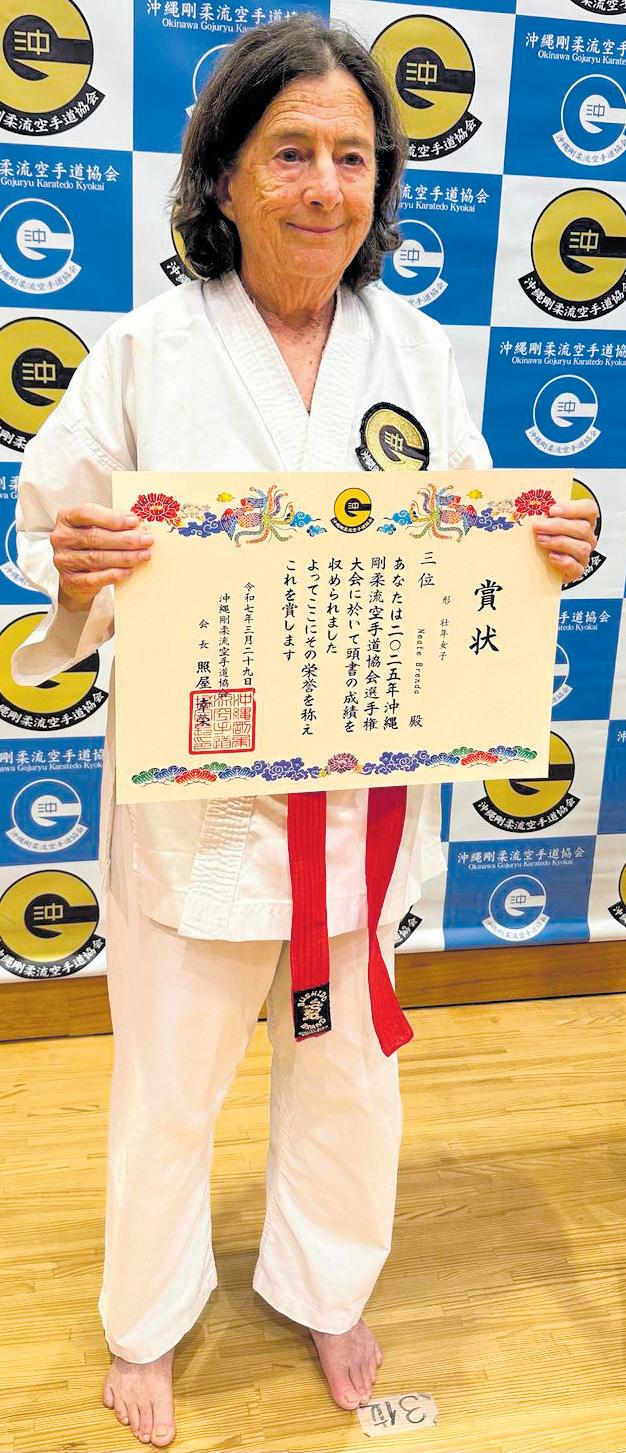 沖縄剛柔流空手道協会
Okinawa Gojuryu Karatedo Kyokai
沖
沖縄剛柔流空手道協会
賞状
形 壮年女子
三位 Neate Brenda 殿
あなたは二〇二五年沖縄
剛柔流空手道協会選手権
大会に於いて頭書の成績を
収められました
よってここにその栄誉を称え
これを賞します
令和七年三月二十九日
沖縄剛柔流空手道協会
会長 照屋幸栄
BUSHIDO
BRAND
3位